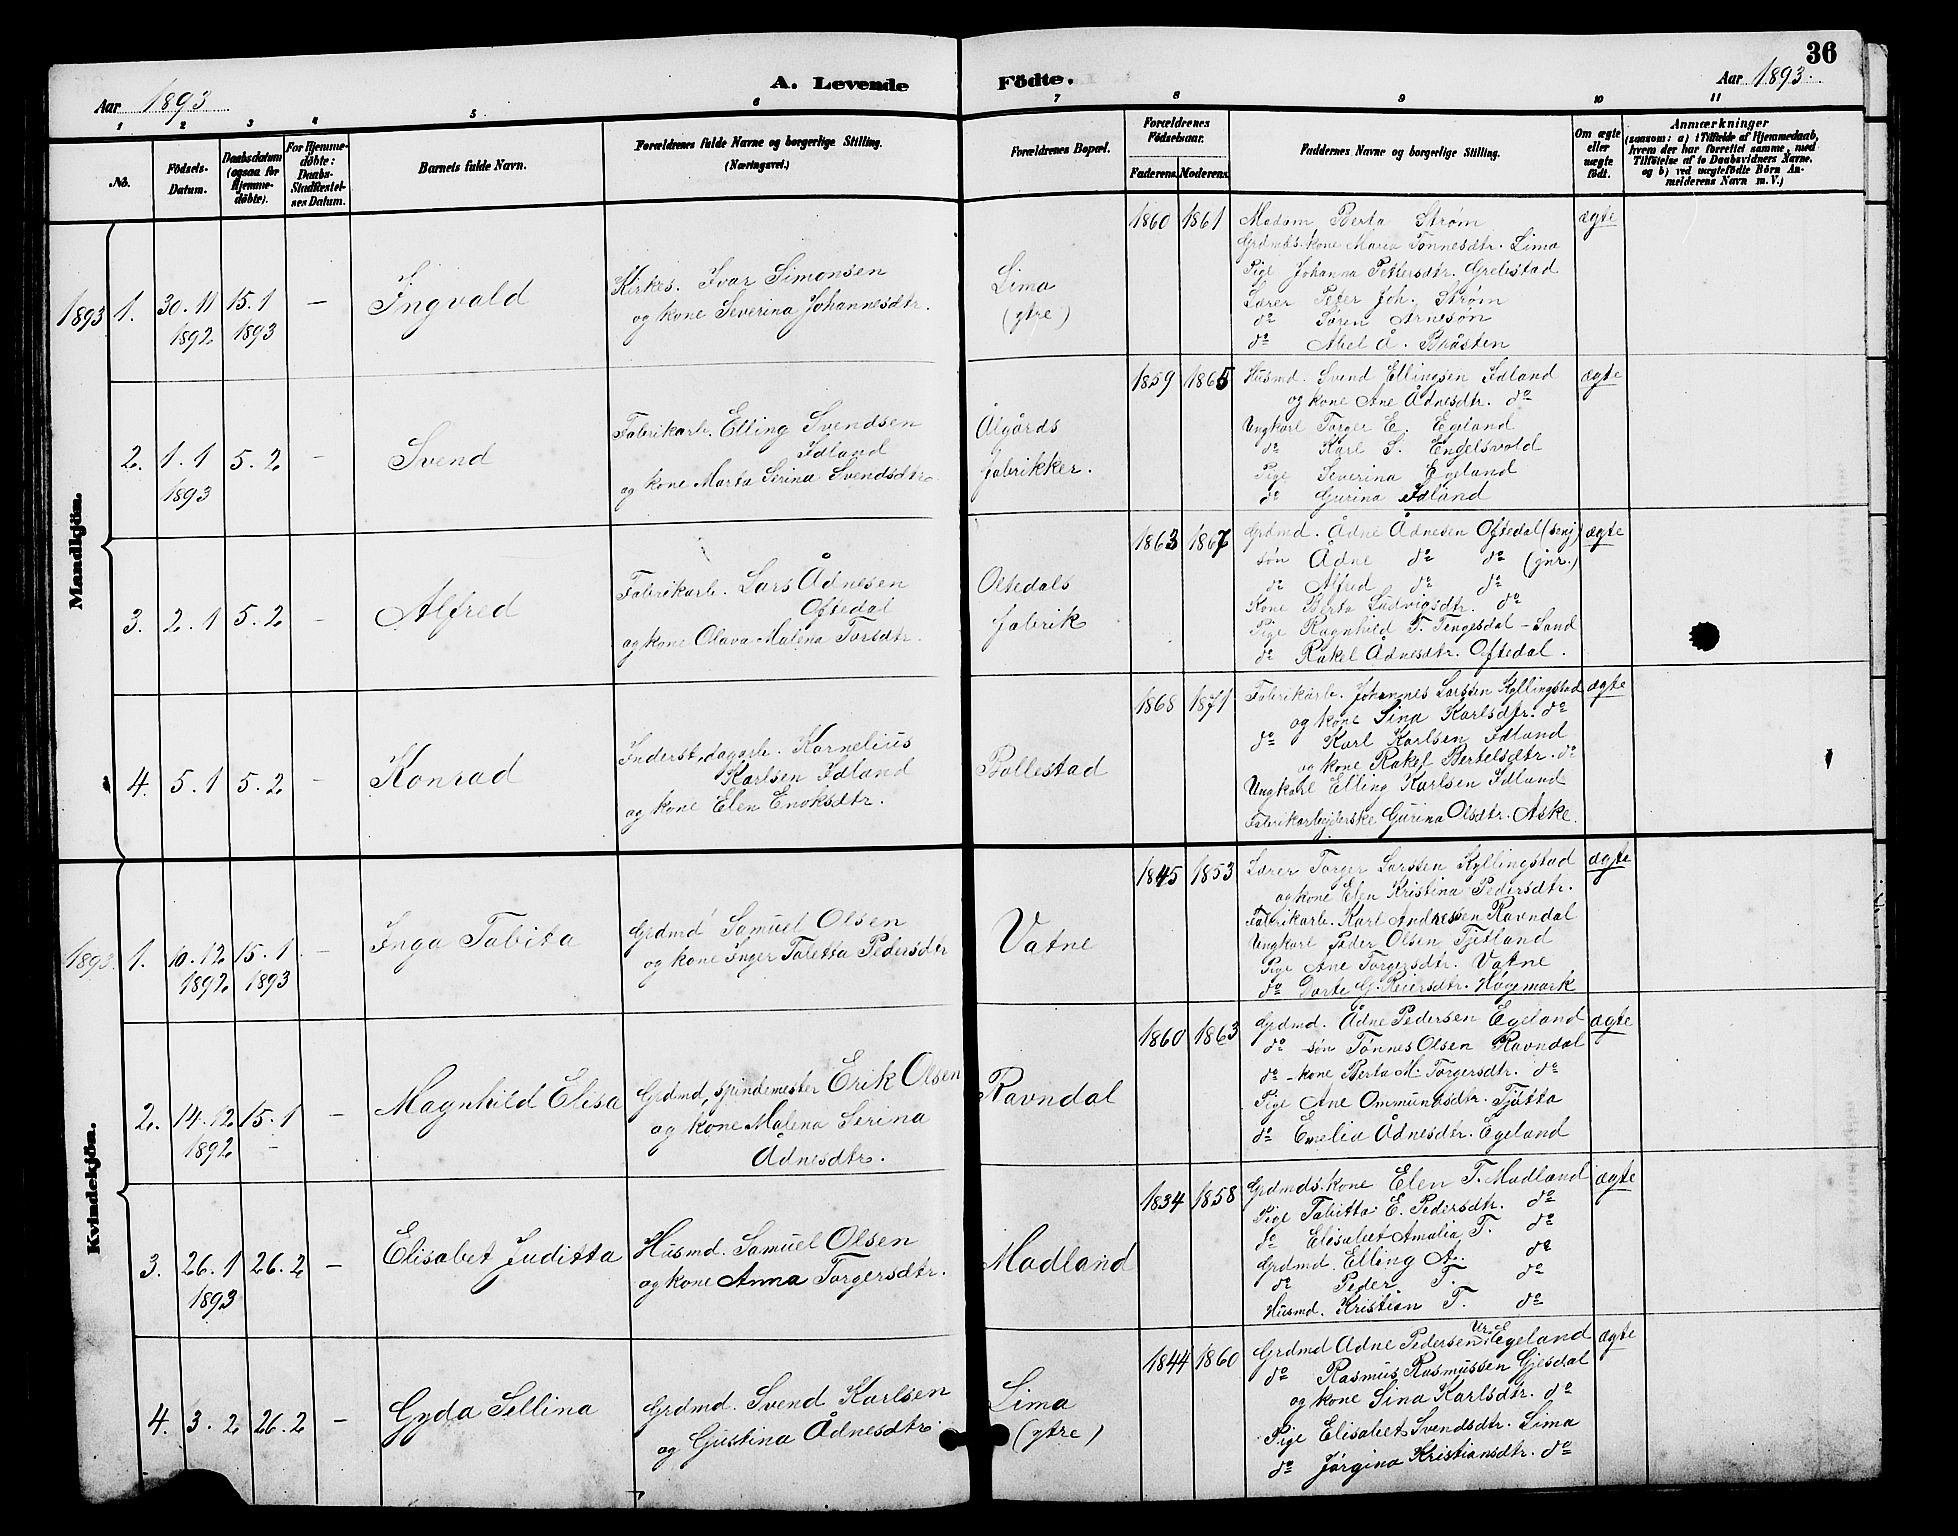 36
A. Levende Födte.
Aar 1893
Aar 1893.
1 2 3 4 5 6 7 8 9 10 11
No.
Födsels-Datum.
Daabsdatum (ogsaa for Hjemmedöbte).
For Hjemmedöbte: Daabs-Stadfæstelses Datum.
Barnets fulde Navn.
Forældrenes fulde Navne og borgerlige Stilling.
(Næringsvei.)
Forældrenes Bopæl.
Forældrenes Födselsaar.
Faderens. Moderens.
Faddernes Navne og borgerlige Stilling.
Om ægte eller uægte födt.
Anmærkninger
(saasom: a) i Tilfælde af Hjemmedaab, hvem der har forrettet samme, med Tilföielse af to Daabsvidners Navne, og b) ved uægtefödte Börn Anmelderens Navn m. V.)
Mandkjön.
1893 1. 30.11 1892 15.1 1893 —
Ingvald
Kirkes. Ivar Simonsen
og kone Severina Johannesdtr.
Lima
(ytre)
1860 1861
Madam Berta Strøm
Grdmds. kone Maria Tønnesdtr. Lima
Pige Johanna Pettersdtr. Grelistad
Lærer Peter Joh. Strøm
do Søren Arnesøn
do Abel Å. Bråsten
ægte
2. 1.1 1893 5.2 —
Svend
Fabrikarb. Elling Svendsen
Idland
og kone Marta Serina Svendsdtr.
Ålgårds
fabrikker.
1859 1865
Husmd. Svend Ellingsen Idland
og kone Ane Ådnesdtr. do
Ungkarl Torger E. Egeland
do Karl S. Engelsvold
Pige Severina Egeland
do Gurina Idland
ægte
3. 2.1 5.2 —
Alfred
Fabrikarb. Lars Ådnesen
Oftedal
og kone Olava Malena Torsdtr.
Oltedals
fabrik
1863 1867
Grdmd. Ådne Ådnesen Oftedal (senj)
søn Ådne do do (jnr.)
do Alfred do do
Kone Berta Ludvigsdtr. do
Pige Ragnhild T. Tengesdal - Sand
do Rakel Ådnesdtr. Oftedal.
ægte
4. 5.1 5.2 —
Konrad
Inderst, dagarb. Kornelius
Karlsen Idland
og kone Elen Enoksdtr.
Bollestad
1868 1871
Fabrikarb. Johannes Larssen Kyllingstad
og kone Sina Karlsdtr. do
do Karl Karlsen Idland
og kone Rakel Bertelsdtr. do
Ungkarl Elling Karlsen Idland
Fabrikarbeiderske Gurina Olsdtr. Aske.
ægte
Kvindekjön.
1893. 1. 10.12 1892 15.1 1893 —
Inga Tabita
Grdmd Samuel Olsen
og kone Inger Taletta Pedersdtr
Vatne
1845 1853
Lærer Torger Larssen Kyllingstad
og kone Elen Kristina Pedersdtr.
Fabrikarb. Karl Andressen Ravndal
Ungkarl Peder Olsen Tjetland
Pige Ane Torgersdtr. Vatne
do Dorte G. Reiersdtr. Høgemark
ægte
2. 14.12 1892 15.1 —
Magnhild Elisa
Grdmd, spindemester Erik Olsen
og kone Malena Serina
Ådnesdtr.
Ravndal
1860 1863
Grdmd. Ådne Pedersen Egeland
do - søn Tønnes Olsen Ravndal
do - kone Berta M. Torgersdtr. do
Pige Ane Ommundsdtr. Tjøtta
do Emelia Ådnesdtr. Egeland
ægte
3. 26.1 1893 26.2 —
Elisabet Juditta
Husmd. Samuel Olsen
og kone Anna Torgersdtr.
Madland
1834 1858
Grdmds. kone Elen T. Madland
Pige Tabitta E. Pedersdtr. do
do Elisabet Amalia T. do
Grdmd. Elling A. do
do Peder T. do
Husmd. Kristian T. do
ægte
4. 3.2 26.2 —
Gyda Sellina
Grdmd. Svend Karlsen
og Gustina Ådnesdtr.
Lima
(ytre)
1844 1860
Grdmd Ådne Pedersen Egeland
do Rasmus Rasmussen Gjesdal
og kone Sina Karlsdtr. do
Pige Elisabet Svendsdtr. Lima
do Jørgina Kristiansdtr. do
ægte